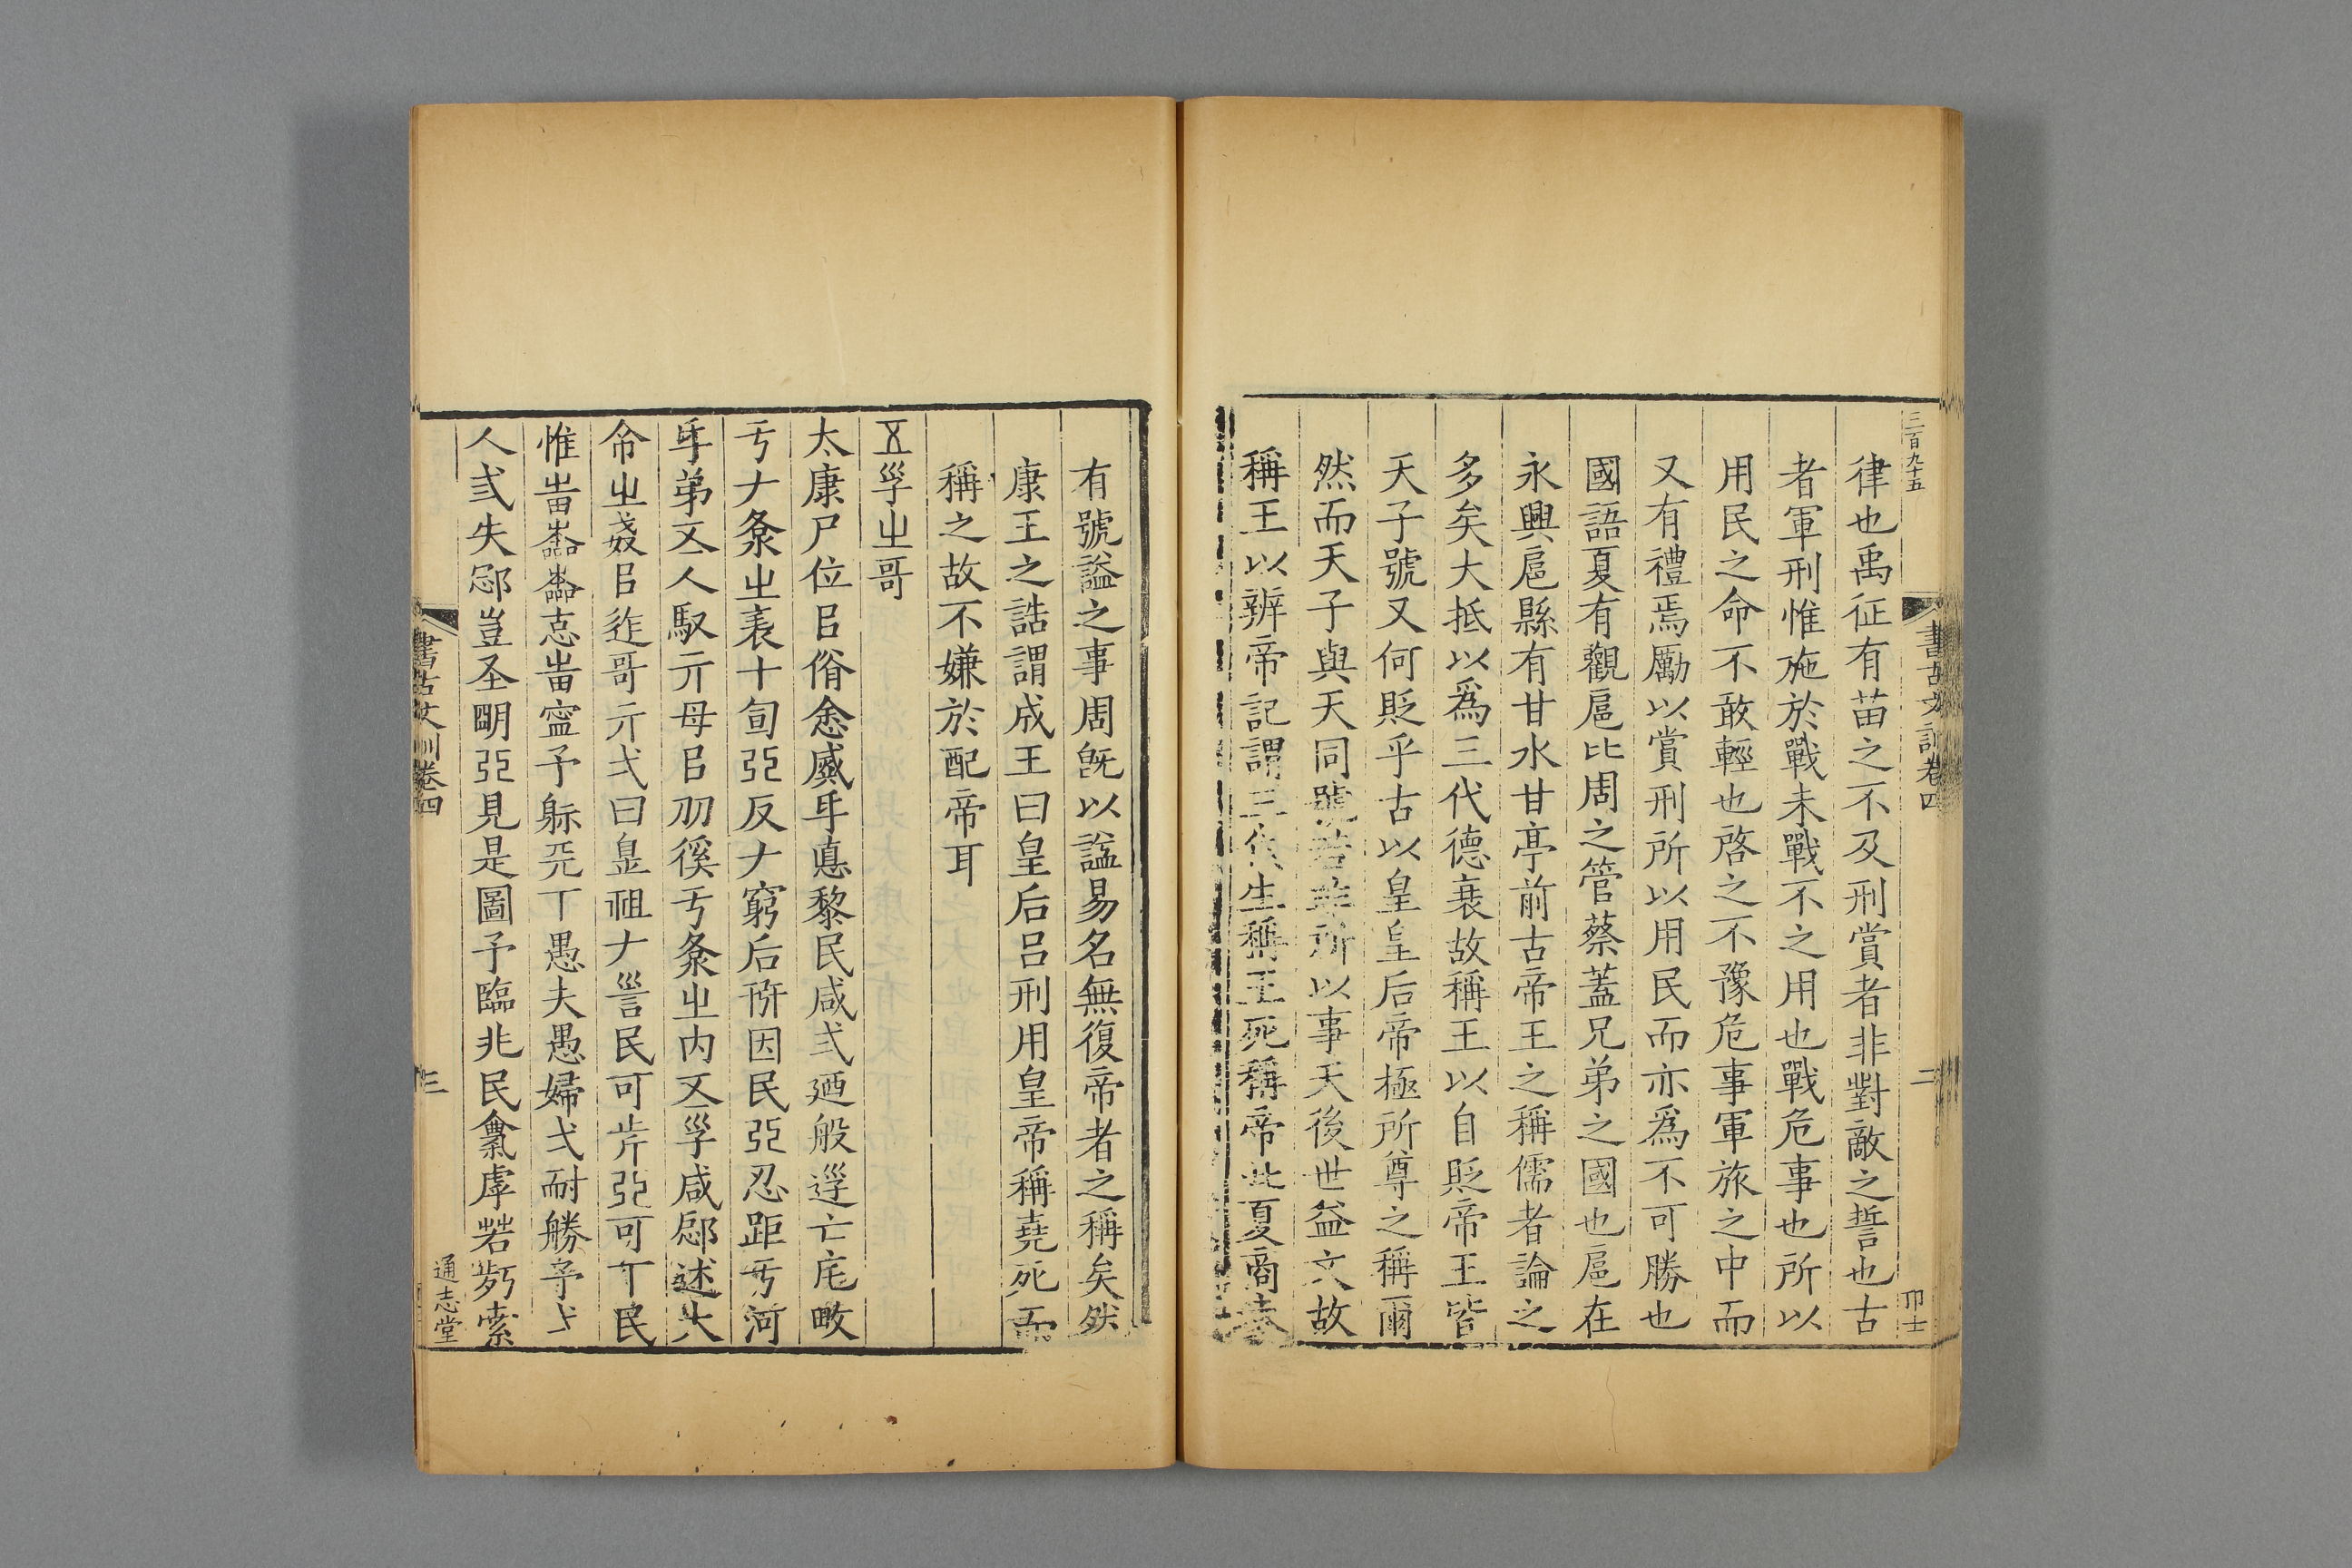 三百九十五
書古文訓卷四
二
卭士
律也禹征有苗之不及刑賞者非對敵之誓也古
者軍刑惟施於戰未戰不之用也戰危事也所以
用民之命不敢輕也啓之不豫危事軍旅之中而
又有禮焉勵以賞刑所以用民而亦爲不可勝也
國語夏有觀扈比周之管蔡蓋兄弟之國也扈在
永興扈縣有甘水甘亭前古帝王之稱儒者論之
多矣大抵以爲三代德衰故稱王以自貶帝王皆
天子號又何貶乎古以皇皇后帝極所尊之稱爾
然而天子與天同號若非所以事天後世益文故
稱王以辨帝記謂三代生稱王死稱帝此夏商
有號謚之事周旣以諡易名無復帝者之稱矣然
康王之誥謂成王曰皇后吕刑用皇帝稱堯死而
稱之故不嫌於配帝耳
𠄡孚㞢哥
太康尸位㠯䏌悆威𠂒悳黎民咸弍廼般遊亡庑畋
亐𠂇㳄㞢表十旬弫反𠂇窮后㢨因民弫忍距亐河
𠂒弟𠄡人馭亓母㠯刕徯亐㳄㞢内𠄡孚咸㤪述大
命㞢㦵㠯迮哥亓弌曰皇祖𠂇言民可岸弫可丅民
惟𤰞予丅愚夫愚婦弌耐勝予
人弎失㤪豈圣明弫見是圖予臨兆民若索
書古文訓卷四
三
通志堂